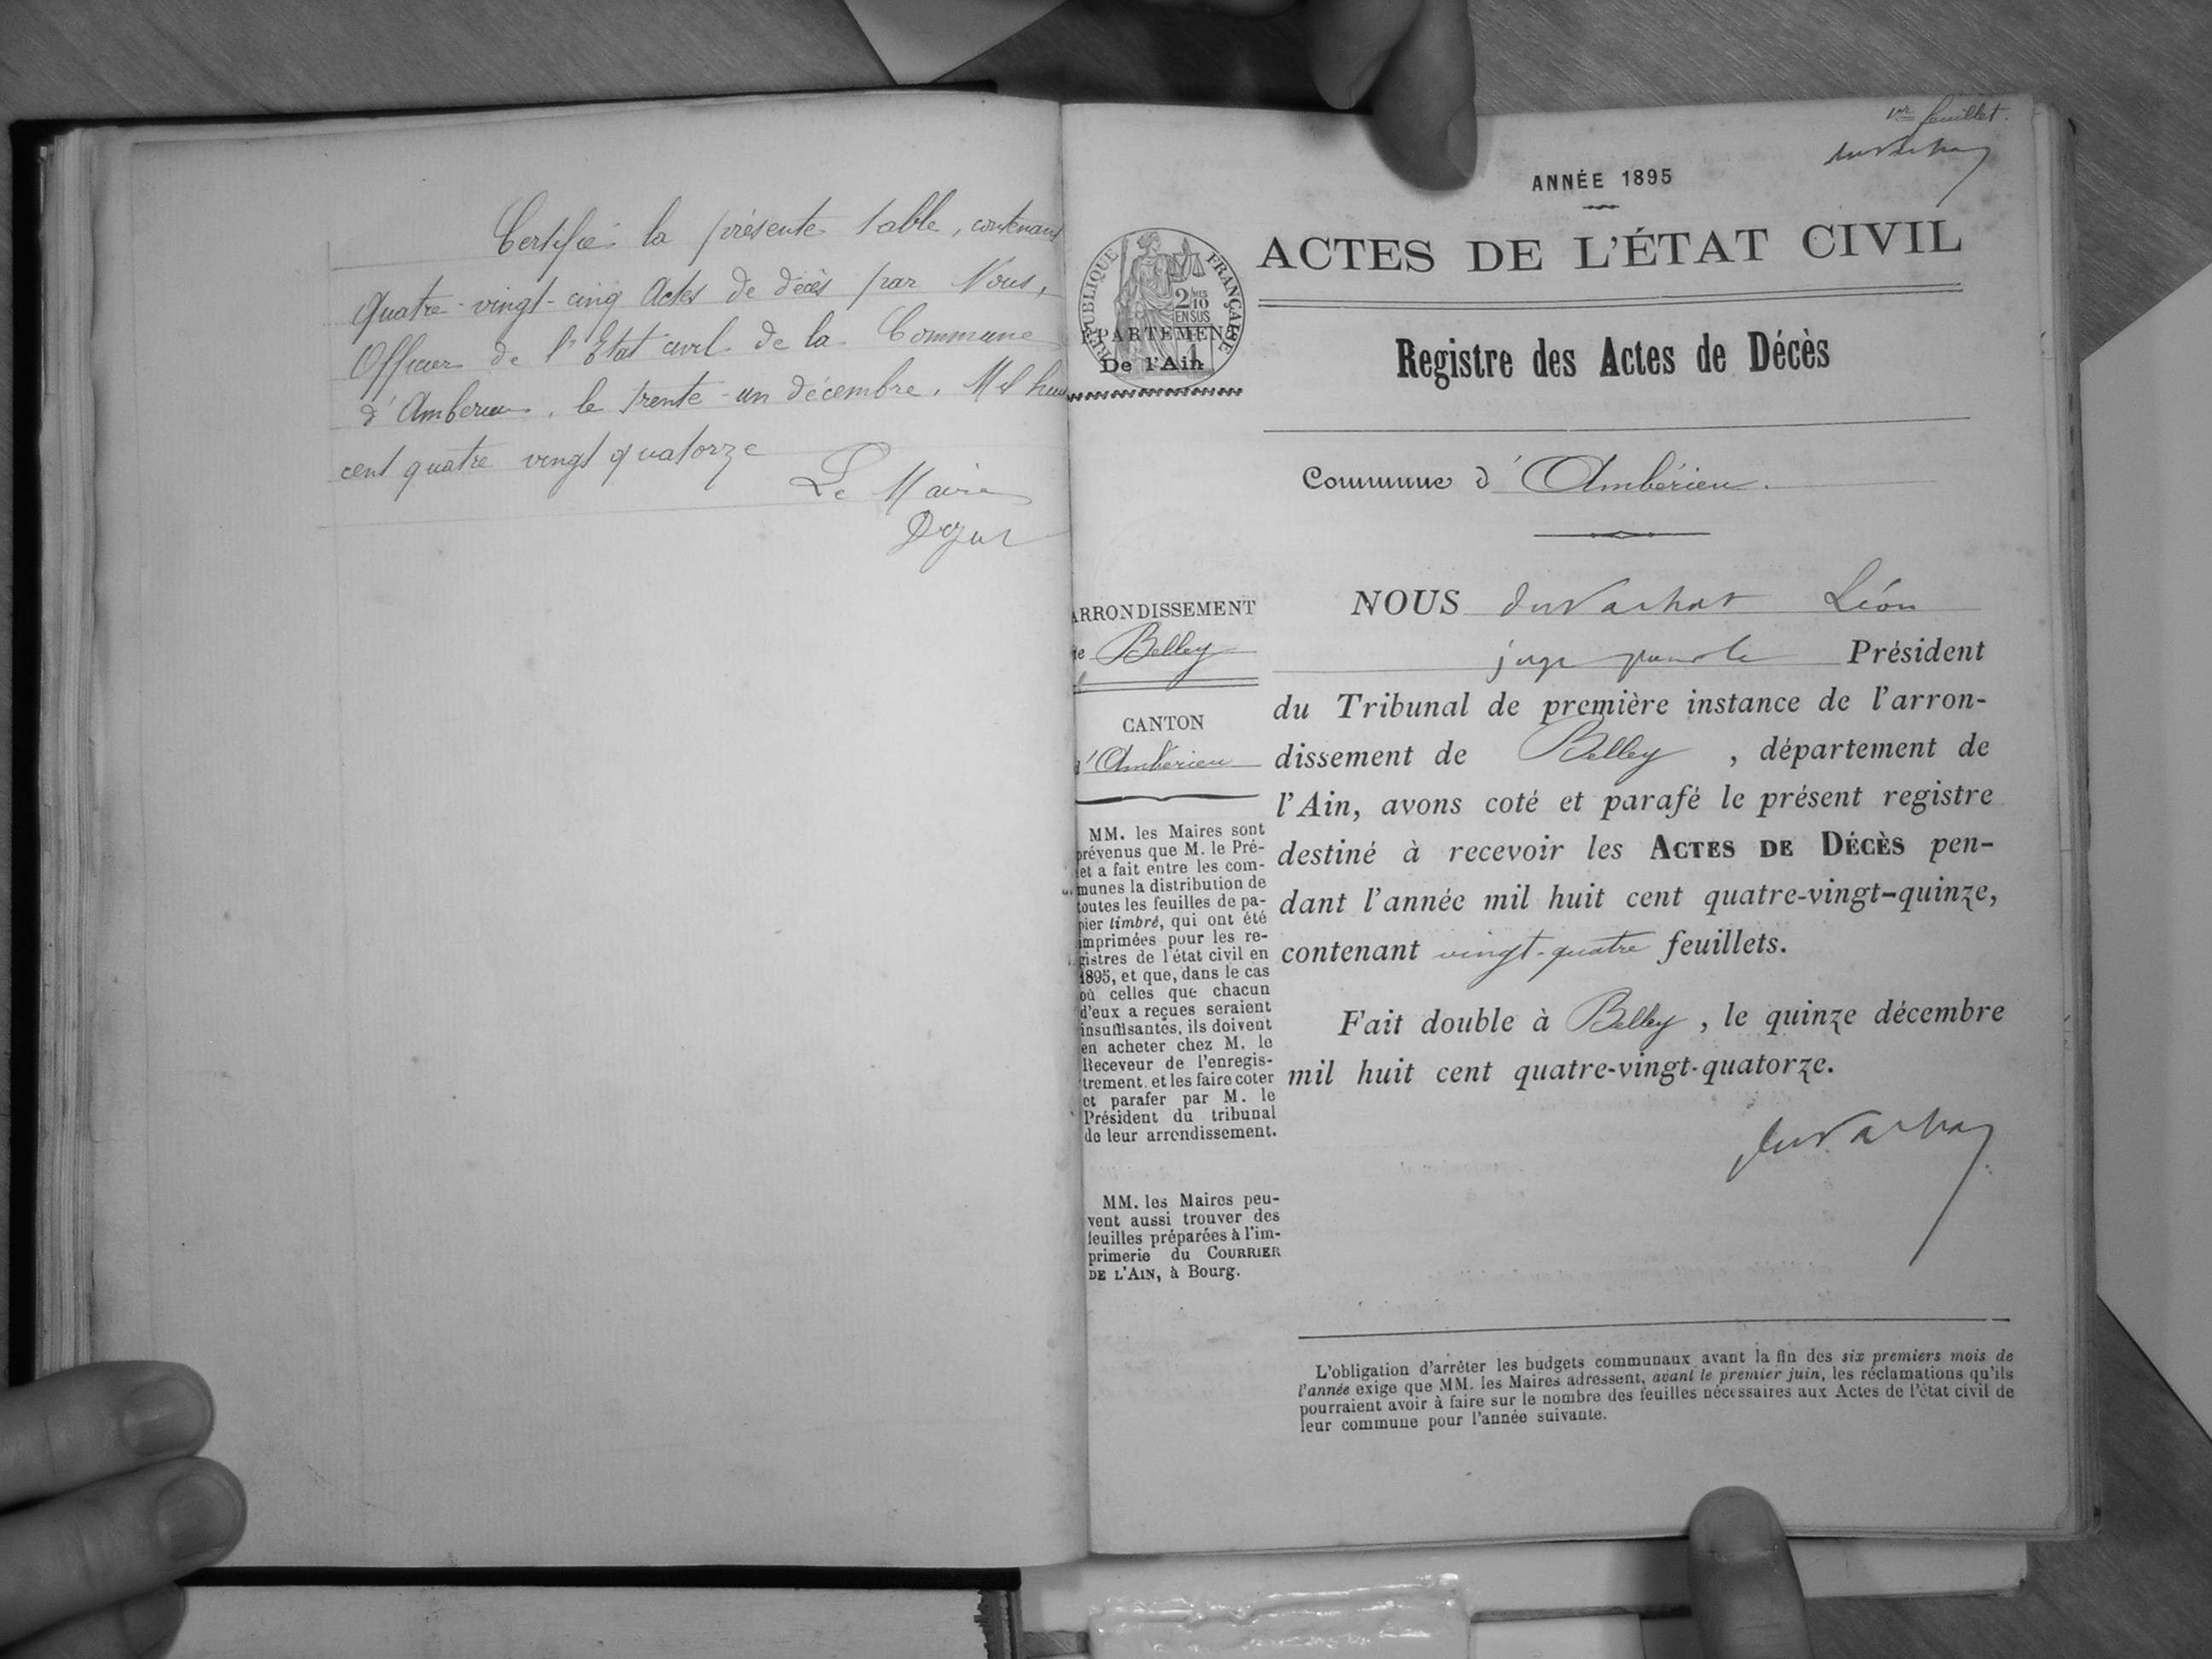 Certifié la présente table, contenant
Quatre-vingt-cinq Actes de décès par Nous,
Officier de l'Etat civil de la Commune
d'Ambérieu, le trente-un décembre, Mil huit
cent quatre vingt quatorze
Le Maire
1er feuillet.
ANNÉE 1895
ACTES DE L'ÉTAT CIVIL
RÉPUBLIQUE FRANÇAISE
2/10 MES
EN SUS
DÉPARTEMENT
De l'Ain
Registre des Actes de Décès
Commune d'Ambérieu.
ARRONDISSEMENT
de Belley
CANTON
d'Ambérieu
MM. les Maires sont
prévenus que M. le Pré-
fet a fait entre les com-
munes la distribution de
toutes les feuilles de pa-
pier timbré, qui ont été
imprimées pour les re-
gistres de l'état civil en
1895, et que, dans le cas
où celles que chacun
d'eux a reçues seraient
insuffisantes, ils doivent
en acheter chez M. le
Receveur de l'enregis-
trement et les faire coter
et parafer par M. le
Président du tribunal
de leur arrondissement.
MM. les Maires peu-
vent aussi trouver des
feuilles préparées à l'im-
primerie du COURRIER
DE L'AIN, à Bourg.
NOUS Léon
juge Président
du Tribunal de première instance de l'arron-
dissement de Belley, département de
l'Ain, avons coté et parafé le présent registre
destiné à recevoir les ACTES DE DÉCÈS pen-
dant l'année mil huit cent quatre-vingt-quinze,
contenant vingt-quatre feuillets.
Fait double à Belley, le quinze décembre
mil huit cent quatre-vingt-quatorze.
L'obligation d'arrêter les budgets communaux avant la fin des six premiers mois de
l'année exige que MM. les Maires adressent, avant le premier juin, les réclamations qu'ils
pourraient avoir à faire sur le nombre des feuilles nécessaires aux Actes de l'état civil de
leur commune pour l'année suivante.